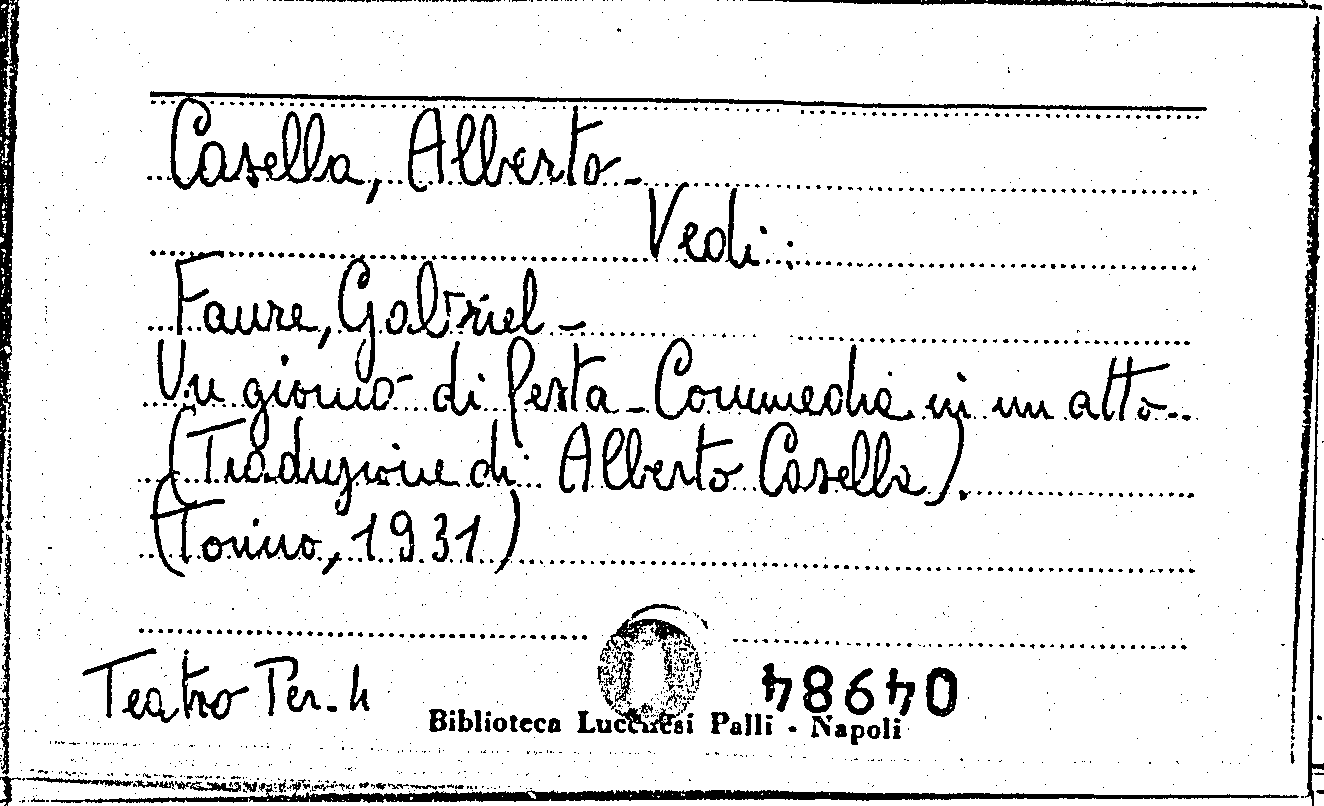 Casella, Alberto -
Vedi:
Faure, Gabriel -
Un giorno di festa - Commedia in un atto -
(Traduzione di Alberto Casella).
(Torino, 1931)
Teatro Per. 4
04984
Biblioteca Lucchesi Palli - Napoli